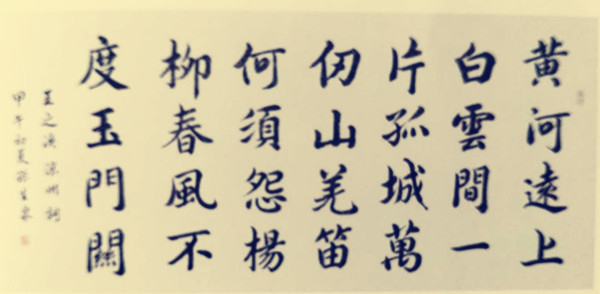 黃河遠上
白雲間一
片孤城萬
仞山羌笛
何須怨楊
柳春風不
度玉門關
王之渙 涼州詞
甲午初夏